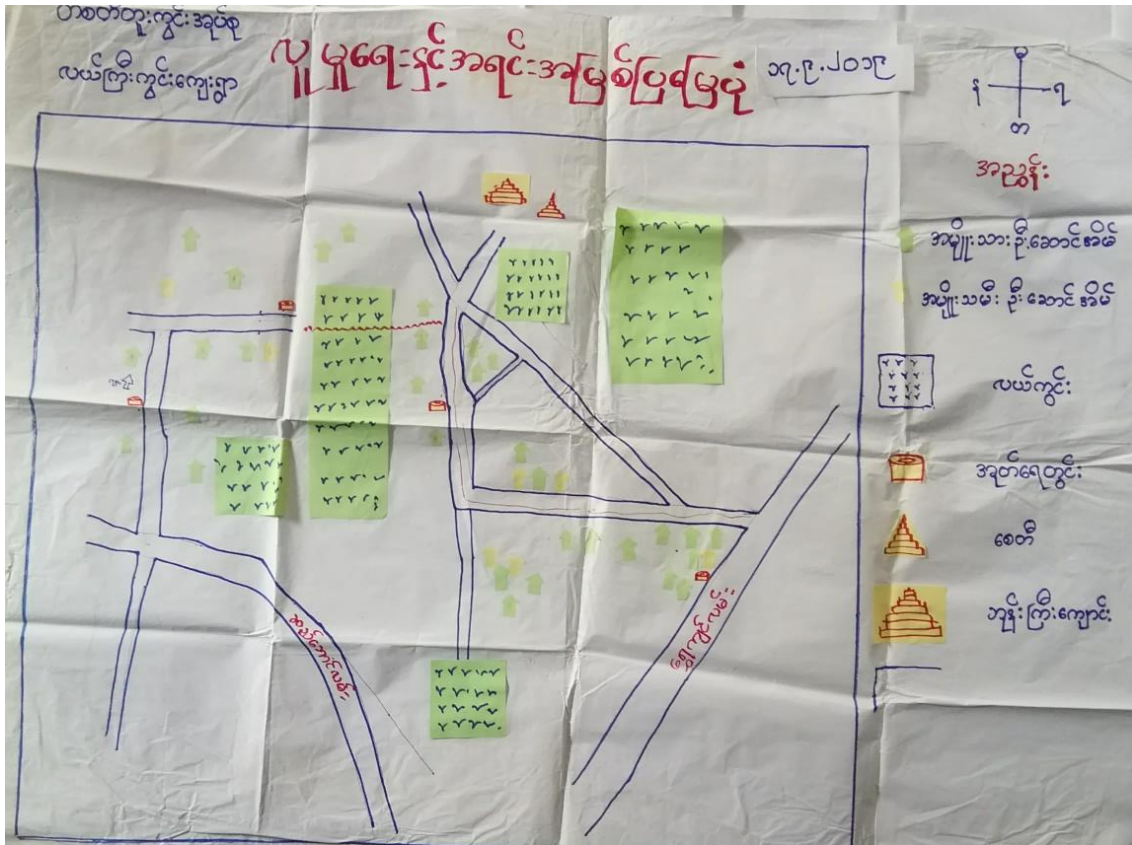 ဟစတီတူးကွင်းအုပ်စု
လယ်ကြီးကွင်းကျေးရွာ
လူမှုရေးနှင့်အရင်းအမြစ်ပြမြေပုံ
၁၇.၉.၂၀၁၉
မြ
န
ရ
တ
အညွှန်း
အမျိုးသားဦးဆောင်အိမ်
အမျိုးသမီးဦးဆောင်အိမ်
လယ်ကွင်း
အုတ်ရေတွင်း
စေတီ
ဘုန်းကြီးကျောင်း
ရွှေကျင်လမ်း